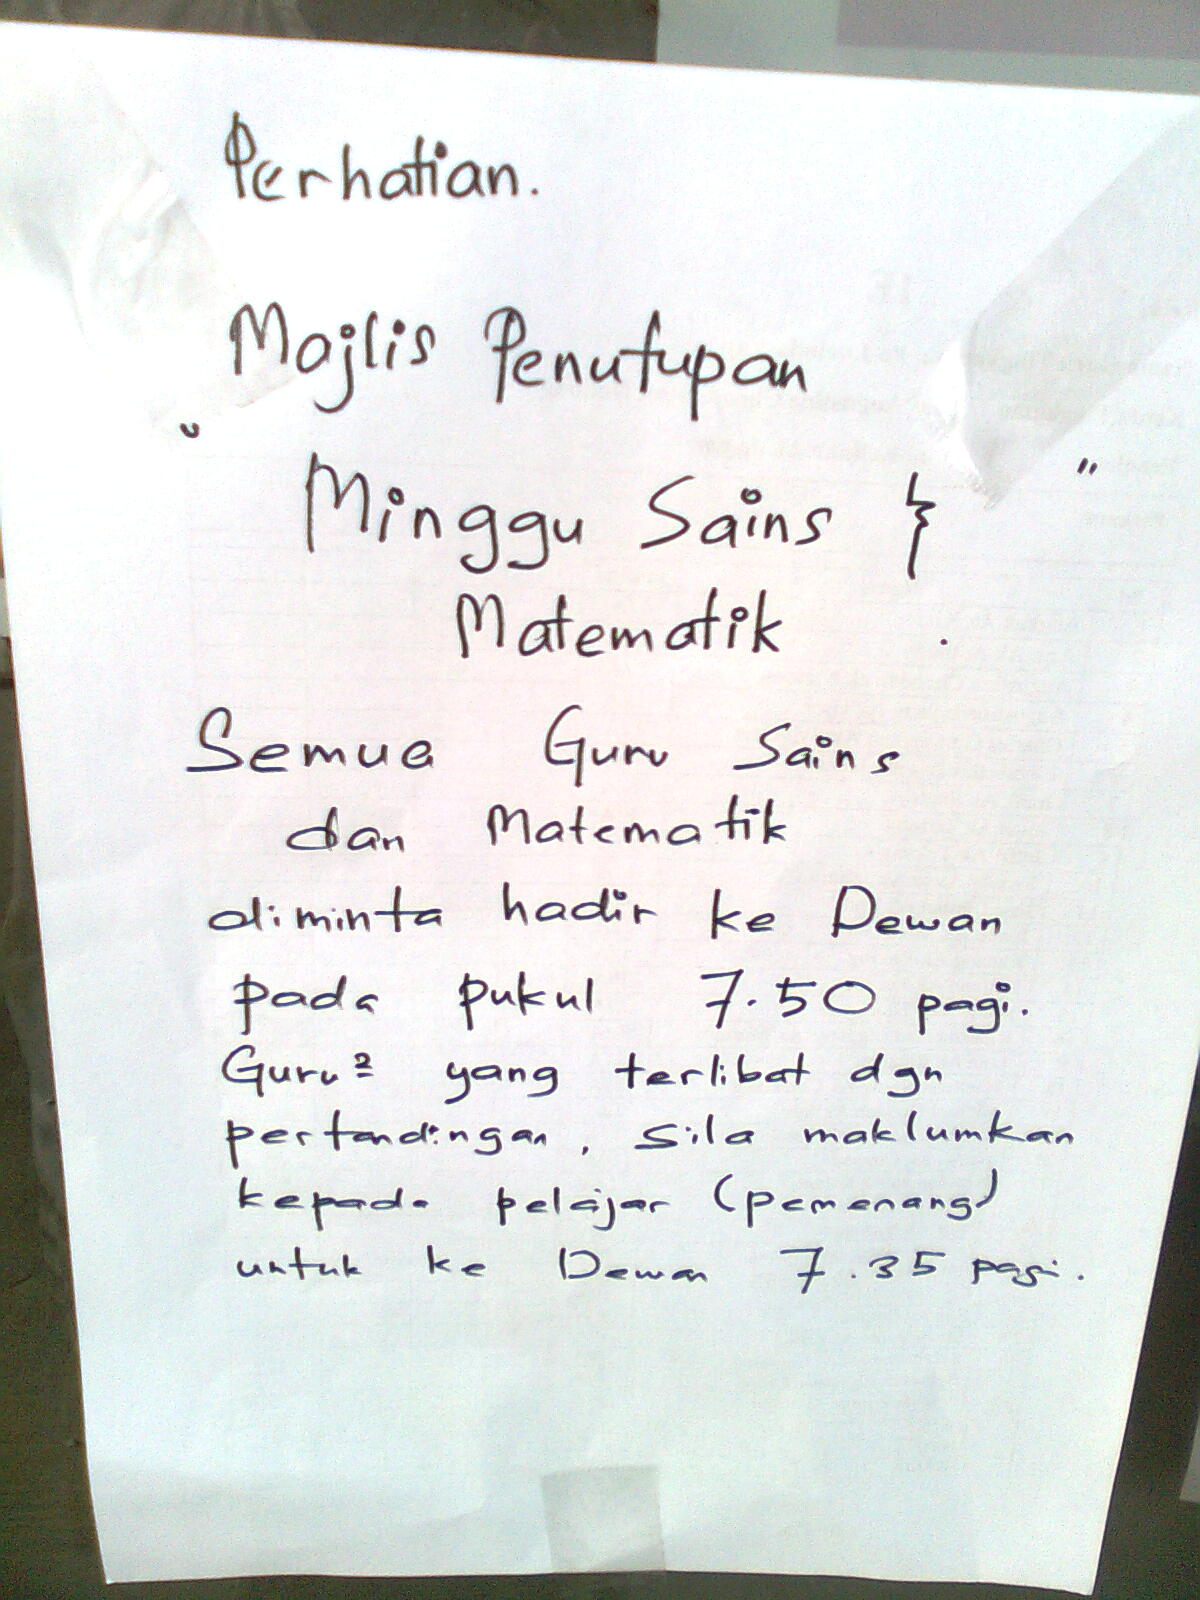 Perhatian.
Majlis Penutupan
"Minggu Sains & "
Matematik .
Semua Guru Sains
dan Matematik
diminta hadir ke Dewan
pada pukul 7.50 pagi.
Guru² yang terlibat dgn
pertandingan, sila maklumkan
kepada pelajar (pemenang)
untuk ke Dewan 7.35 pagi.